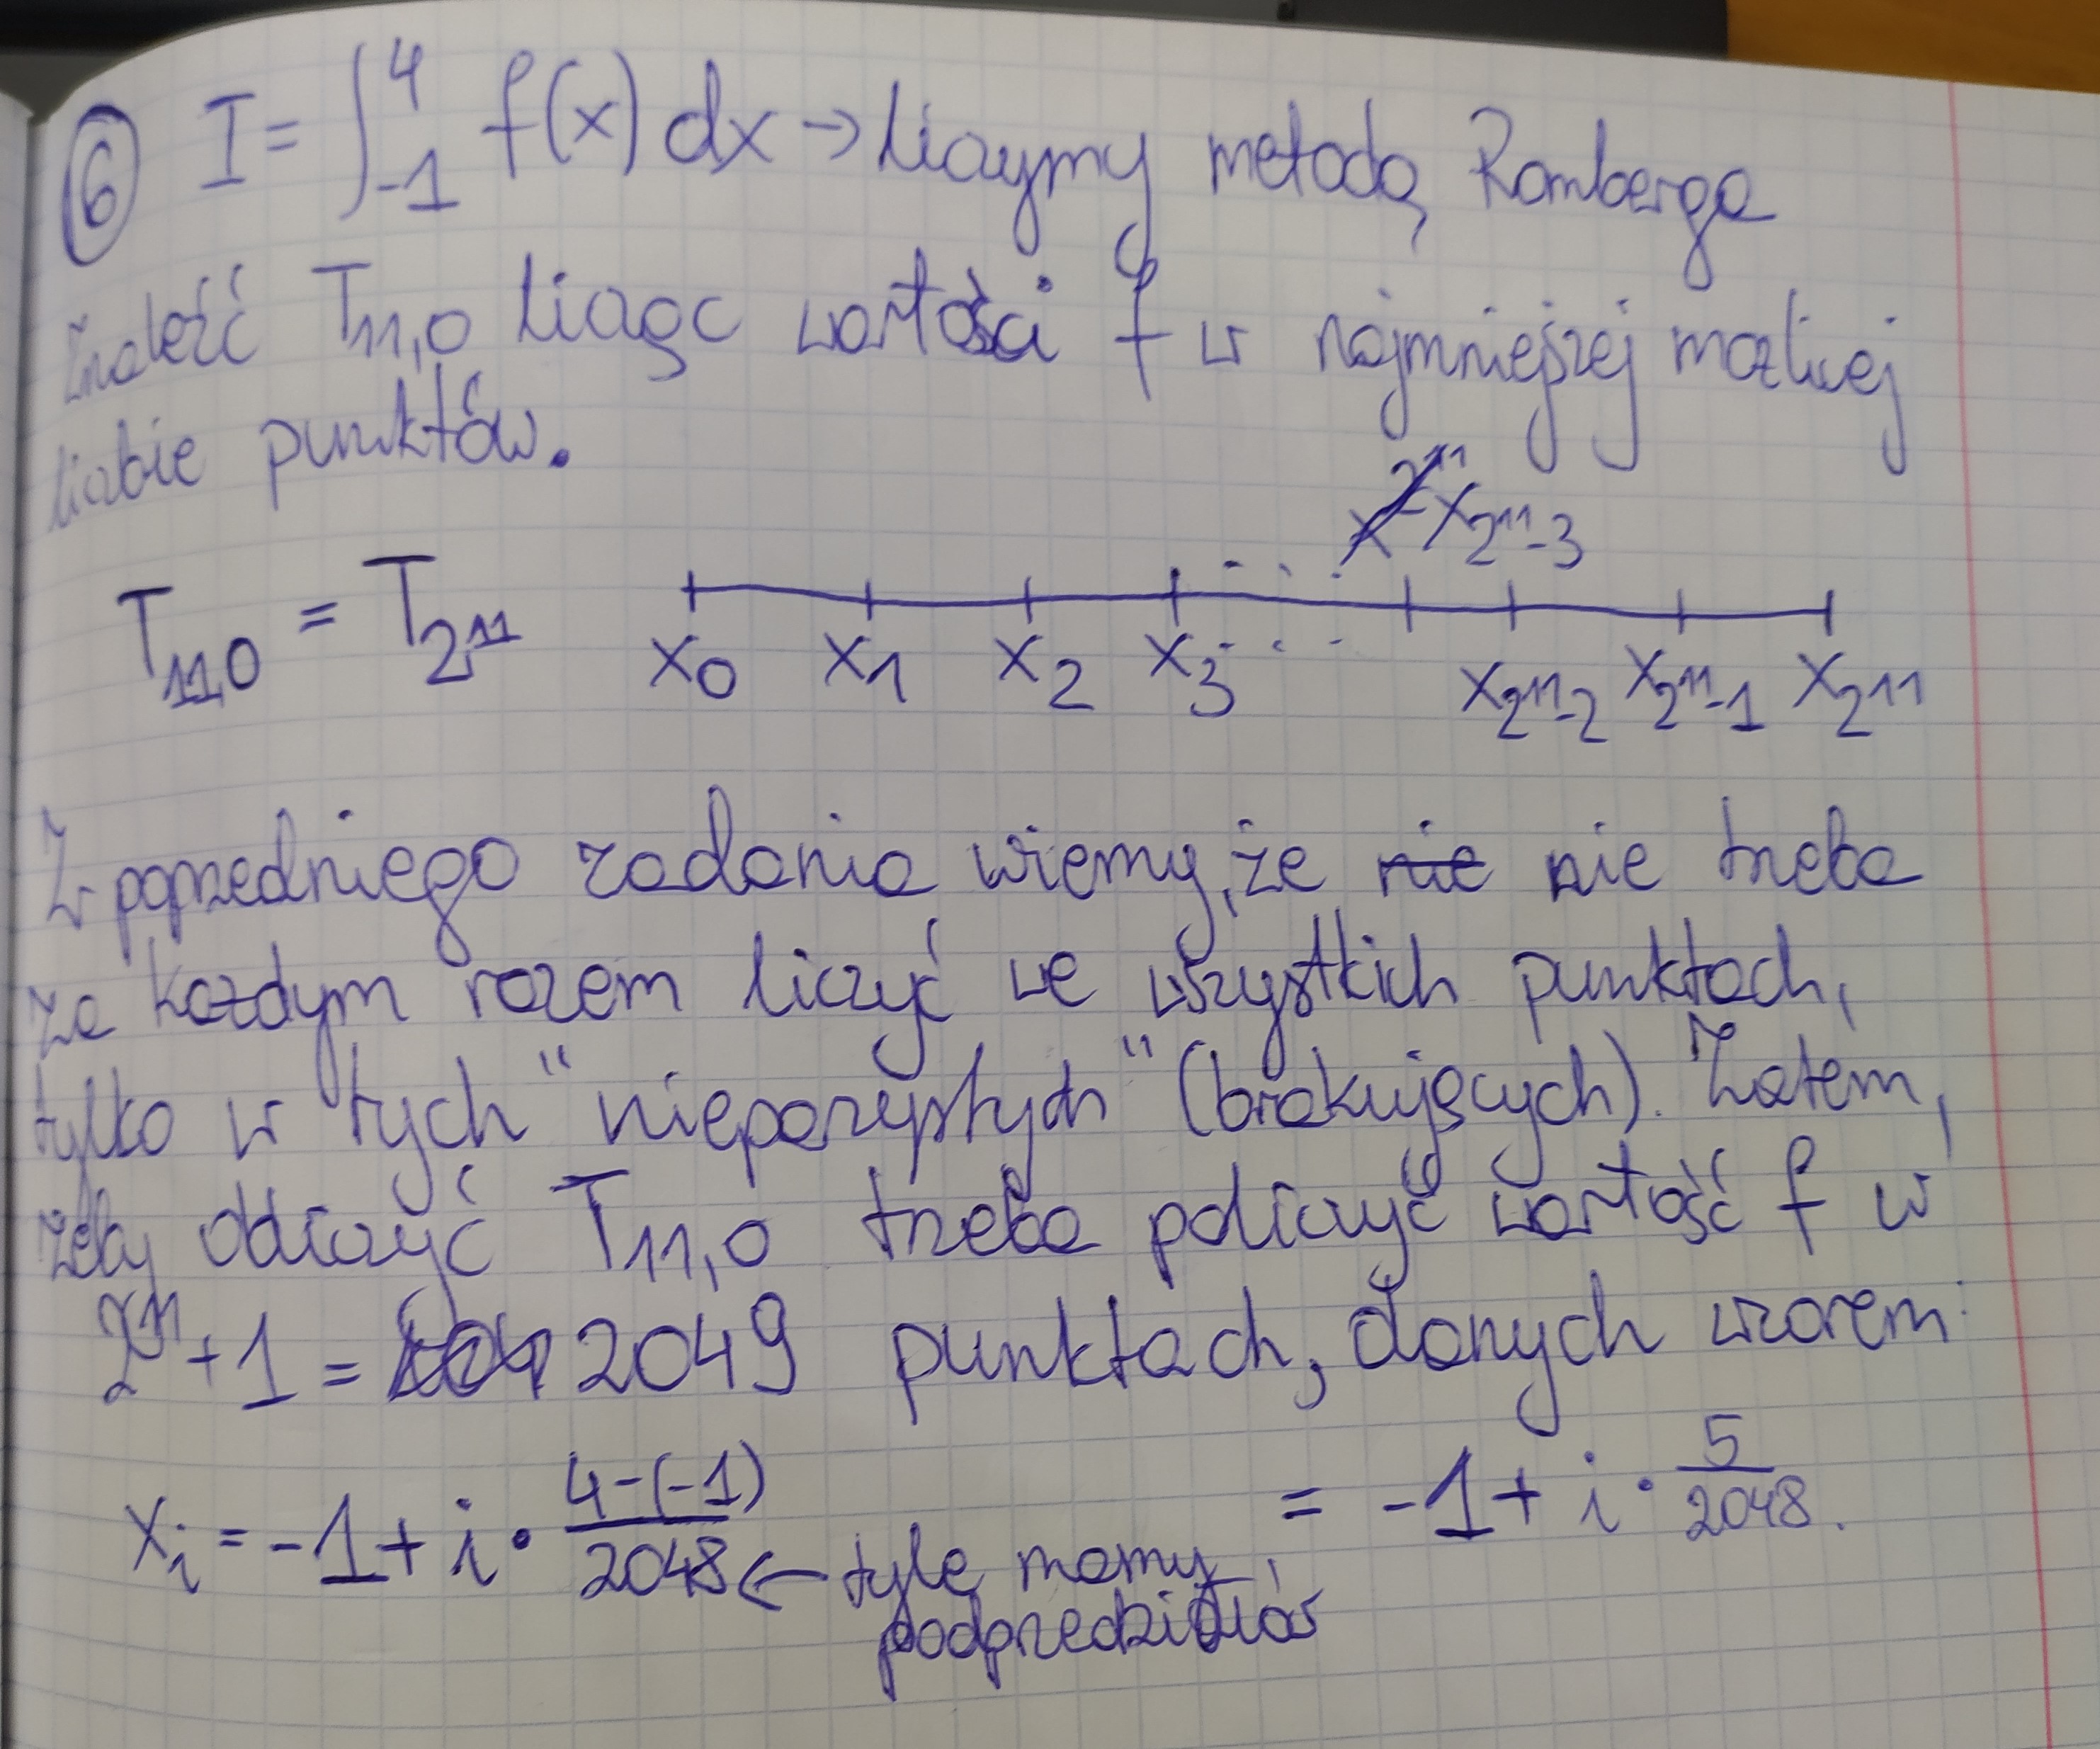 ⑥ I = ∫_{-1}^{4} f(x) dx → liczymy metodą Romberga
Znaleźć T_{11,0} licząc wartości f w najmniejszej możliwej
liczbie punktów.
x_{2^{11}-3}
T_{11,0} = T_{2^{11}}
x_0 x_1 x_2 x_3 ... x_{2^{11}-2} x_{2^{11}-1} x_{2^{11}}
Z poprzedniego zadania wiemy, że nie nie trzeba
za każdym razem liczyć we wszystkich punktach,
tylko w tych "nieparzystych" (brakujących). Zatem,
żeby obliczyć T_{11,0} trzeba policzyć wartość f w
2^{11}+1 = 2049 punktach, danych wzorem:
x_i = -1 + i · \frac{4-(-1)}{2048} ← tyle mamy podprzedziałów = -1 + i · \frac{5}{2048}.